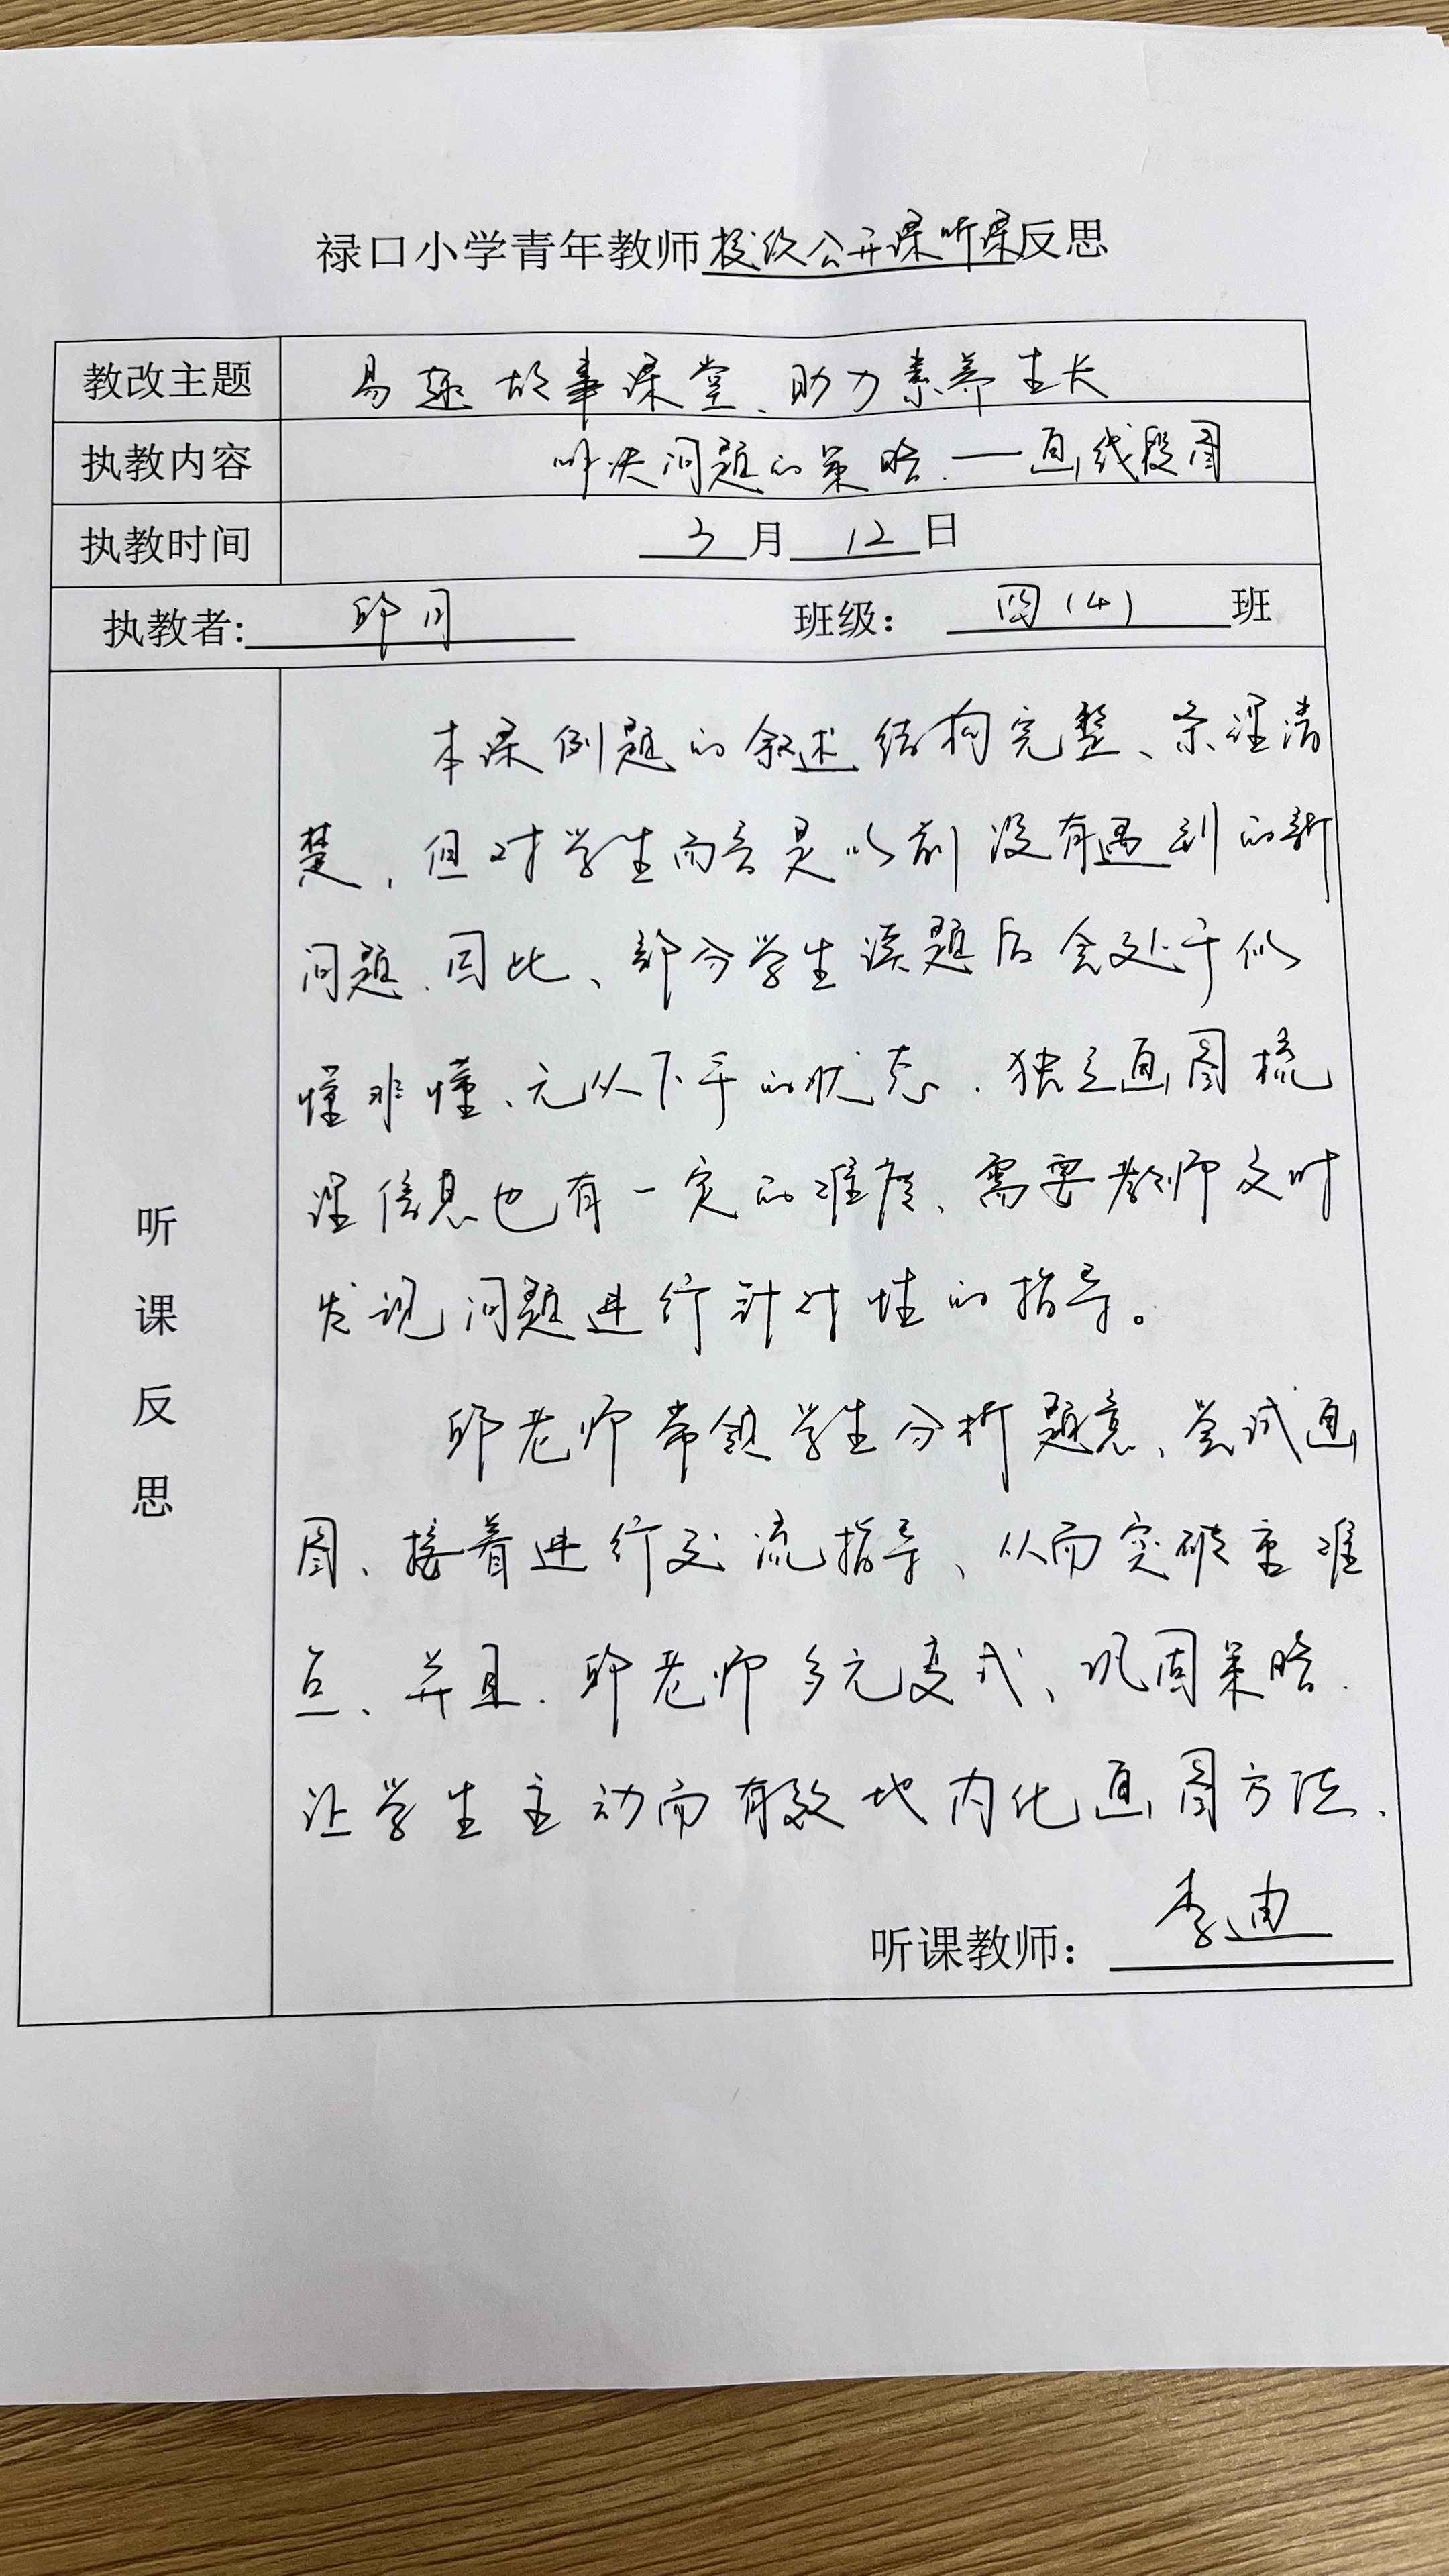 禄口小学青年教师校级公开课听课反思
教改主题 易趣故事课堂、助力素养生长
执教内容 解决问题的策略.——画线段图
执教时间 3月12日
执教者:邱月 班级：四(4)班
听课反思
本课例题的叙述结构完整、条理清
楚，但对学生而言是以前没有遇到的新
问题.因此、部分学生读题后会处于似
懂非懂、无从下手的状态.独立画图梳
理信息也有一定的难度、需要教师及时
发现问题进行针对性的指导。
邱老师带领学生分析题意、尝试画
图、接着进行交流指导、从而突破重难
点、并且.邱老师多元变式、巩固策略.
让学生主动而有效地内化画图方法.
听课教师：李迪